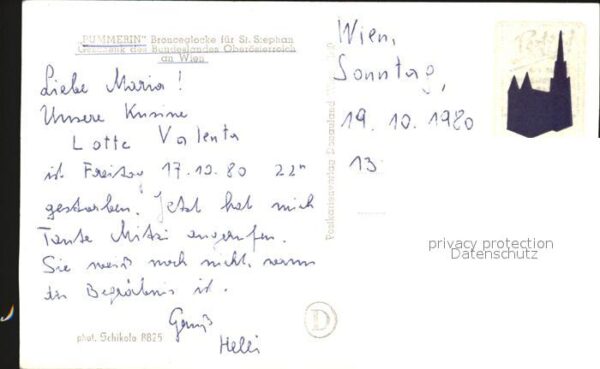 "PUMMERIN" Bronceglocke für St. Stephan
Geschenk des Bundeslandes Oberösterreich
an Wien
Liebe Maria!
Unsere Kusine
Lotte Valenta
ist Freitag 17.10.80 22h
gestorben. Jetzt hat mich
Tante Mitzi angerufen.
Sie weiß noch nicht, wann
das Begräbnis ist.
Gruß
Helli
phot. Schikola 8825
Wien,
Sonntag,
19. 10. 1980
13
Postkartenverlag Donauland
D
privacy protection
Datenschutz